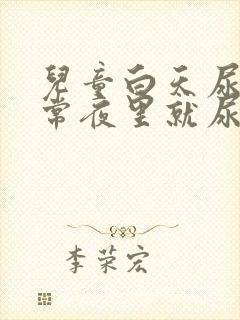 兒童白天尿
常夜里就尿
李荣宏